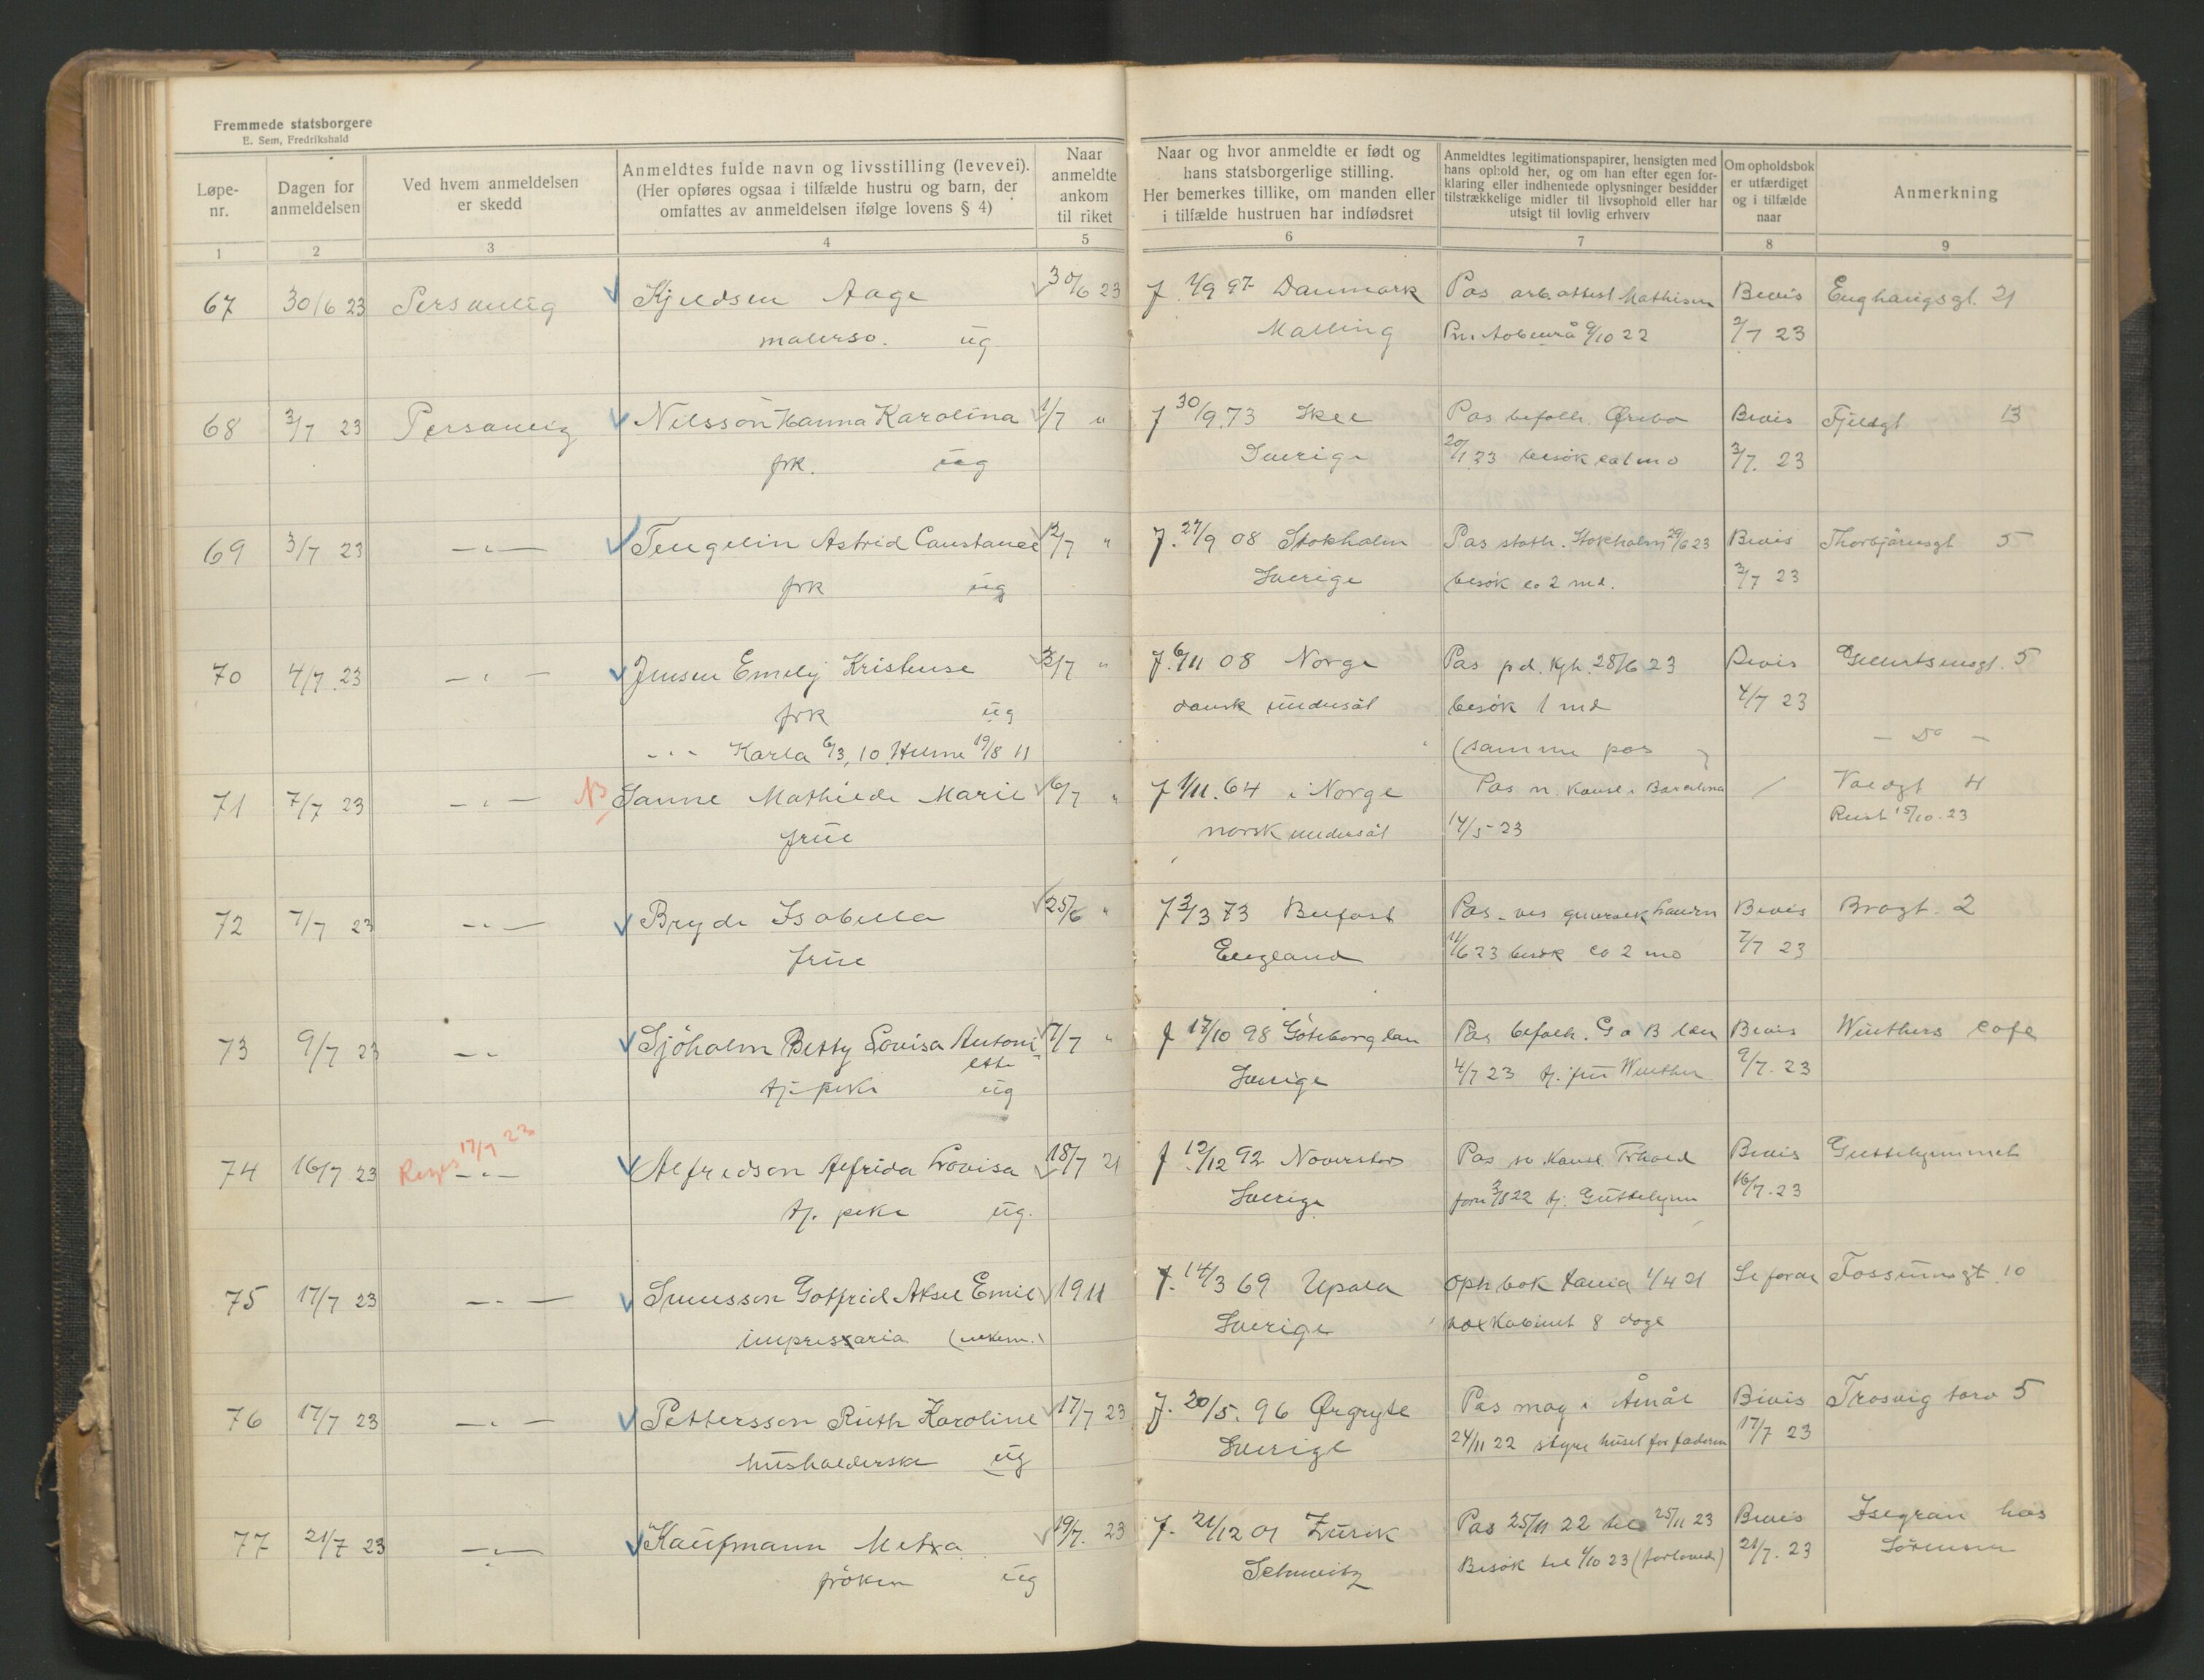 Fremmede statsborgere
E. Sem, Fredrikshald
Løpe-
nr.
Dagen for
anmeldelsen
Ved hvem anmeldelsen
er skedd
Anmeldtes fulde navn og livsstilling (levevei).
(Her opføres ogsaa i tilfælde hustru og barn, der
omfattes av anmeldelsen ifølge lovens § 4)
Naar
anmeldte
ankom
til riket
Naar og hvor anmeldte er født og
hans statsborgerlige stilling.
Her bemerkes tillike, om manden eller
i tilfælde hustruen har indfødsret
Anmeldtes legitimationspapirer, hensigten med
hans ophold her, og om han efter egen for-
klaring eller indhentede oplysninger besidder
tilstrækkelige midler til livsophold eller har
utsigt til lovlig erhverv
Om opholdsbok
er utfærdiget
og i tilfælde
naar
Anmerkning
1 2 3 4 5 6 7 8 9
67 30/6 23 Personlig Kjeldsen Aage 30/6 23 f. 1/9 97 Danmark Pas arb. attest Mathisen Bevis Enghaugsgt. 21
malersv. ug Malling Aabenrå 9/10 22 2/7 23
68 3/7 23 Personlig Nilsson Hanna Karolina 1/7 " f 30/9.73 Skee Pas befolk. Ørebo Bevis Fjeldgt 13
frk. ug Sverige 20/1 23 besøk 3/7. 23
69 3/7 23 — " — Tengelin Astrid Constance 2/7 " f. 27/9 08 Stokholm Pas stath. Stokholm 29/6 23 Bevis Thorbjörnsgt 5
frk ug Sverige besøk ca 2 md. 3/7 23
70 4/7 23 — " — Jensen Emely Kristense 3/7 " f. 6/11 08 Norge Pas pd. Kbh. 28/6 23 Bevis 5
frk ug dansk undersåt besøk 1 md 4/7 23
— " — Karla 6/3, 10 19/8 11 (samme pas) — Do —
71 7/7 23 — " — NB Sanne Mathilde Marie 6/7 " f 1/11. 64 i Norge Pas n. konsl. Barcelona / Voldgt 4
frue norsk undersåt 14/5 23 15/10. 23
72 7/7 23 — " — Bryde Isabella 25/6 " f 3/3 73 Belfast Pas Bevis Brogt. 2
frue England 11/6 23 besøk ca 2 md 7/7 23
73 9/7 23 — " Sjöholm Betty Lovisa Antoni 7/7 " f 17/10 98 Göteborg län Pas befolk. G o B län Bevis Winthers cafe
ette
tj. pike ug Sverige 4/7 23 tj. fru Winther 9/7. 23
74 16/7 23 Reyst 17/7 23 — " — Alfredson Alfrida Lovisa 18/7 21 f 12/12 92 Pas sv. Konsl. Frhald Bevis Guttehjemmet
tj. pike ug. Sverige 3/8 22 tj. Guttehjem 16/7. 23
75 17/7 23 — " — Svensson Gotfrid Aksel Emil 1911 f. 14/3 69 Upsala Oph bok 1/4 21 Se foran Fossumsgt. 10
impressaria Sverige voxkabinet 8 dage
76 17/7 23 — " — Pettersson Ruth Karoline 17/7 23 f. 20/5. 96 Ørgryte Pas mag i Åmål Bevis Trosvig torv 5
husholderske ug Sverige 24/11 22 styre huset for faderen 17/7 23
77 21/7 23 — " — Kaufmann Metxa 19/7. 23 f. 21/12 01 Zürik Pas 25/11 22 til 25/11 23 Bevis Isegran hos
fröken ug Schweitz Besøk til 1/10 23 (forlovede) 21/7. 23 Sörensen